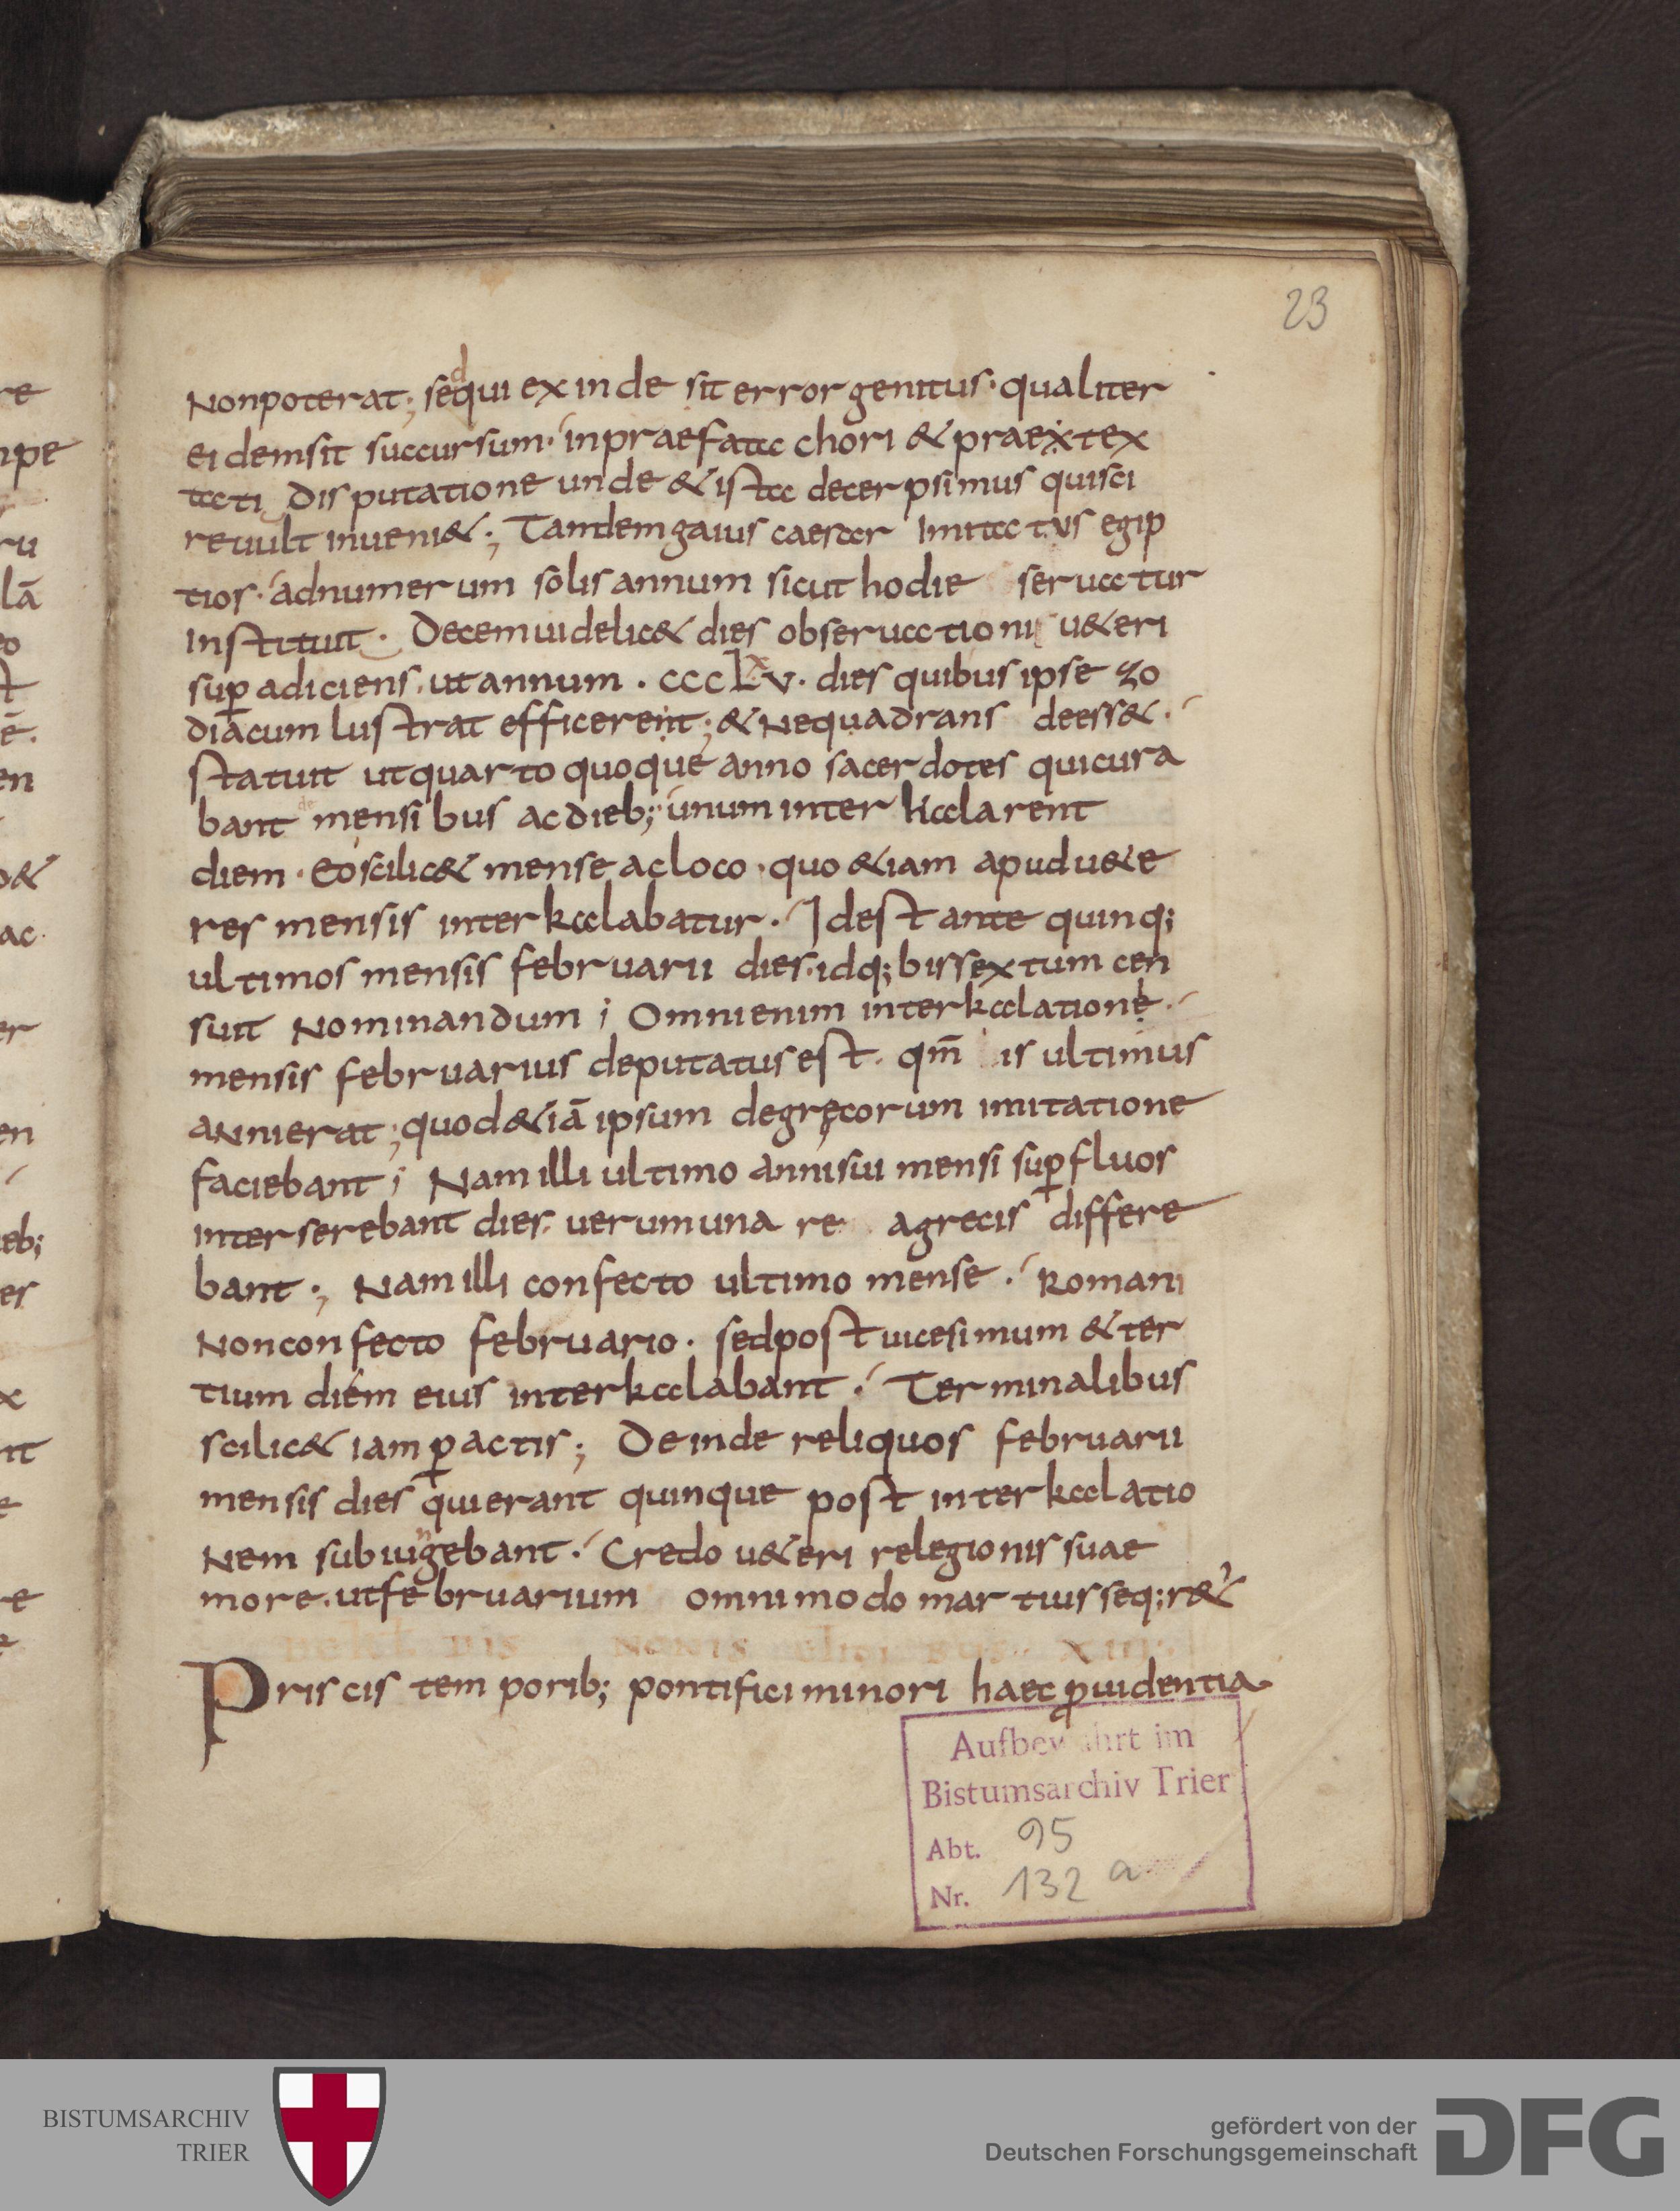 23
Non poterat; sed qui exinde sit error genitus· qualiter
eidem sit succursum· in praefata chori & praetex
tati disputatione unde & ista decerpsimus qui sci
re uult inueni&; Tandem gaius caesar Imitatus egip
tios· ad numerum solis annum sicut hodie seruatur
Instituit· Decem uidelic& dies obseruationi u&eri
sup̱ adiciens· ut annum · CCCLXV · dies quibus ipse zo
diacum lustrat efficerent; & Ne quadrans deess&·
statuit ut quarto quoque anno sacerdotes qui cura
bant mensibus ac dieb; unum inter kalarent
diem· Eo scilic& mense ac loco· quo &iam apud u&e
res mensis interkalabatur· Id est ante quinq;
ultimos mensis februarii dies· idq; bissextum cen
suit Nominandum; Omni enim interkalatione·
mensis februarius deputatus est· qm̄ is ultimus
anni erat; quod &iā ipsum de gręcorum imitatione
faciebant; Nam illi ultimo anni sui mensi sup̱fluos
interserebant dies· uerum una re a grecis differe
bant; Nam illi confecto ultimo mense· Romani
Non confecto februario· sed post uicesimum & ter
tium diem eius interkalabant· Terminalibus
scilic& iam p̱actis; Deinde reliquos februarii
mensis dies qui erant quinque post interkalatio
Nem subiungebant· Credo u&eri relegionis suae
more· ut februarium omni modo martius seq;r&
Priscis temporib; pontifici minori haec ꝓuidentia
Aufbewahrt im
Bistumsarchiv Trier
Abt. 95
Nr. 132 a
BISTUMSARCHIV
TRIER
gefördert von der
Deutschen Forschungsgemeinschaft
DFG